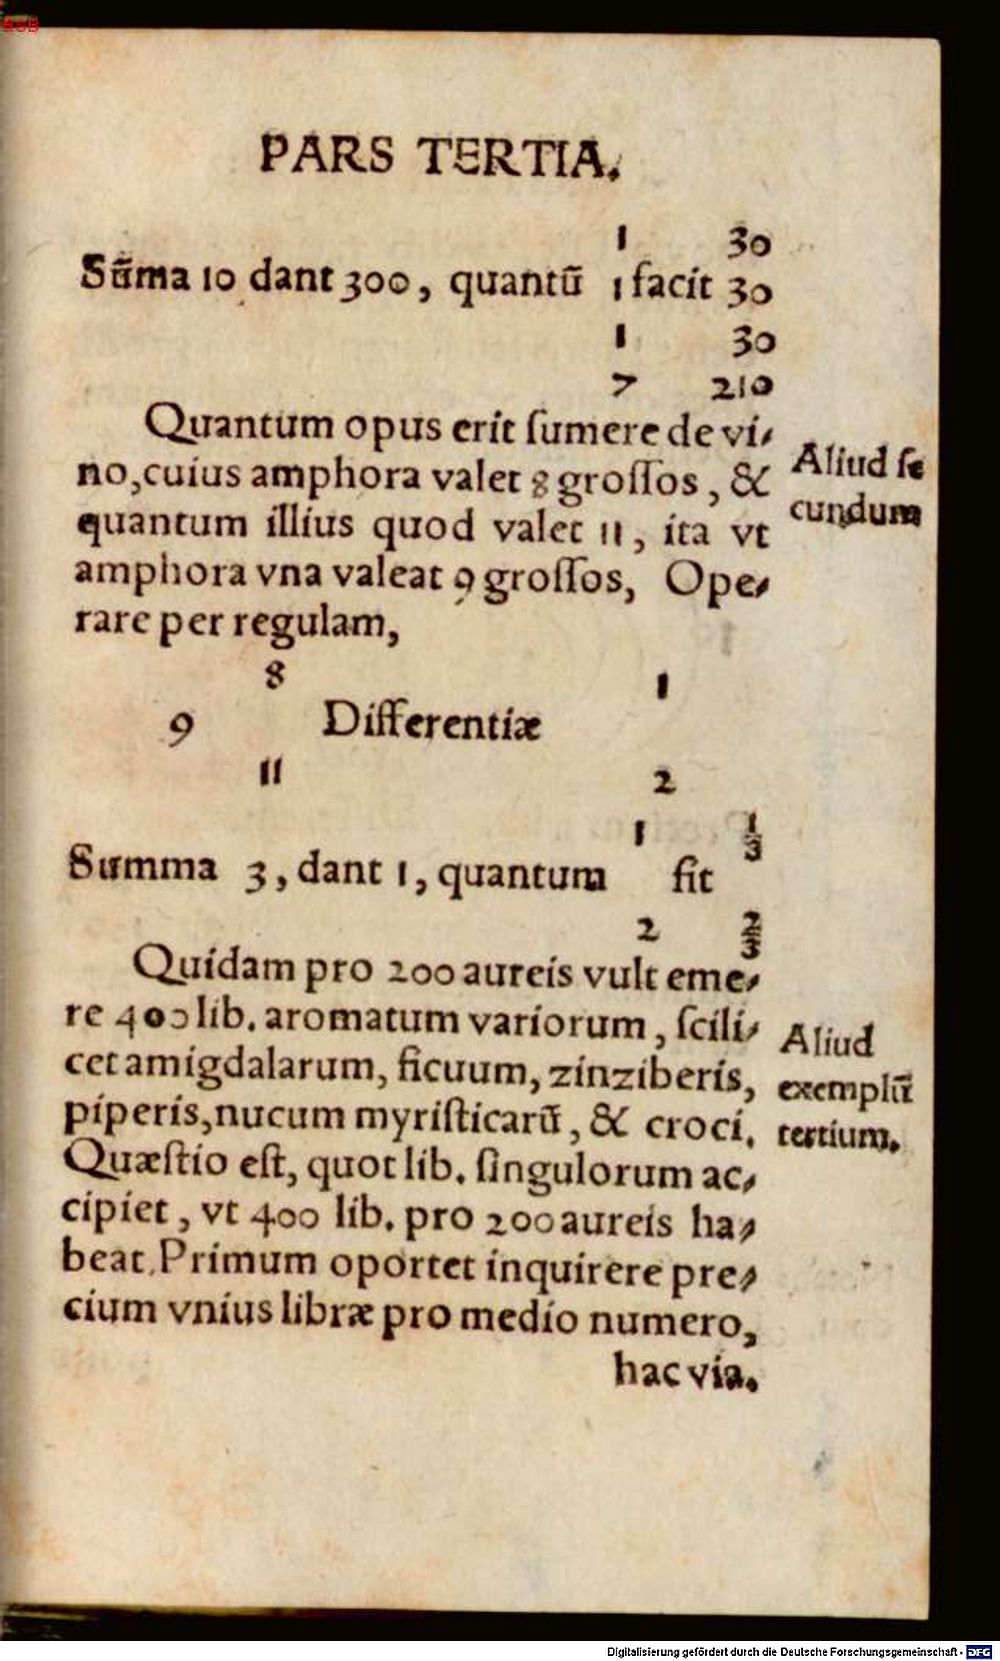 BSB
PARS TERTIA.
1 30
Sūma 10 dant 300, quantū 1 facit 30
1 30
7 210
Quantum opus erit ſumere de vi⸗
no, cuius amphora valet 8 groſſos, &
quantum illius quod valet 11, ita vt
amphora vna valeat 9 groſſos, Ope⸗
rare per regulam,
Aliud ſe
cundum
8 1
9 Differentiæ
11 2
1 1/3
Summa 3, dant 1, quantum ſit
2 2/3
Quidam pro 200 aureis vult eme⸗
re 400 lib. aromatum variorum, ſcili⸗
cet amigdalarum, ficuum, zinziberis,
piperis, nucum myriſticarū, & croci.
Quæſtio eſt, quot lib. ſingulorum ac⸗
cipiet, vt 400 lib. pro 200 aureis ha⸗
beat. Primum oportet inquirere pre⸗
cium vnius libræ pro medio numero,
hac via.
Aliud
exemplū
tertium.
Digitalisierung gefördert durch die Deutsche Forschungsgemeinschaft - DFG